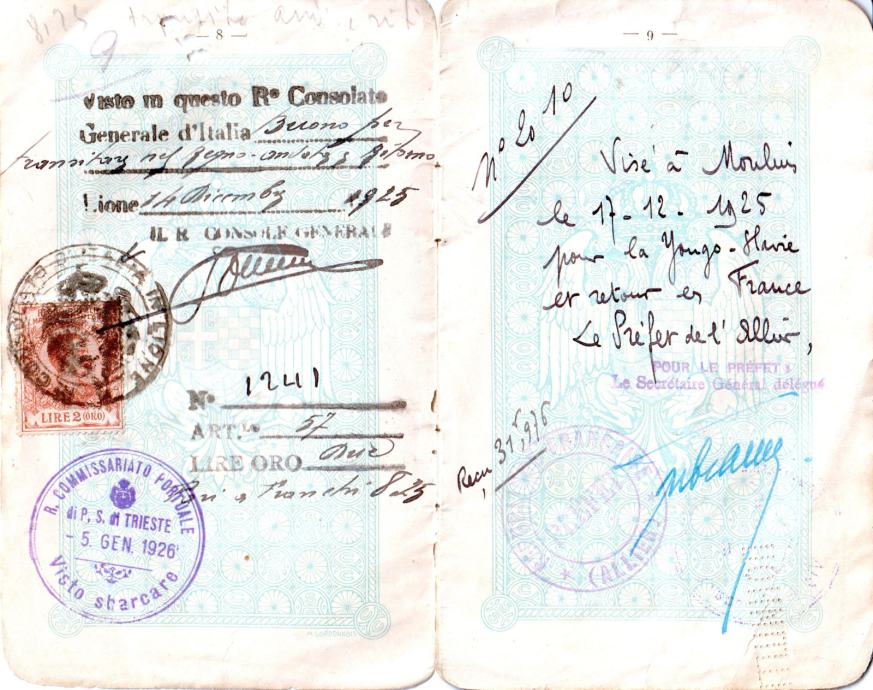 8,25 transito
9
— 8 —
Visto in questo Rº Consolato
Generale d'Italia Buono per
transitare nel Regno
Lione 14 Dicembre 1925
IL R. CONSOLE GENERALE
D'ITALIA IN LIONE
LIRE 2 (ORO)
Nº 1241
ART.lo 57
LIRE ORO Due
Franchi 8.25
R. COMMISSARIATO PORTUALE
di P. S. di TRIESTE
- 5. GEN. 1926
Visto sbarcare
— 9 —
Nº 2010
Visé à Moulins
le 17-12-1925
pour la Yougo-Slavie
et retour en France
Le Préfet de l'Allier,
POUR LE PRÉFET:
Le Secrétaire Général délégué
Reçu
FRANÇAISE
(ALLIER)